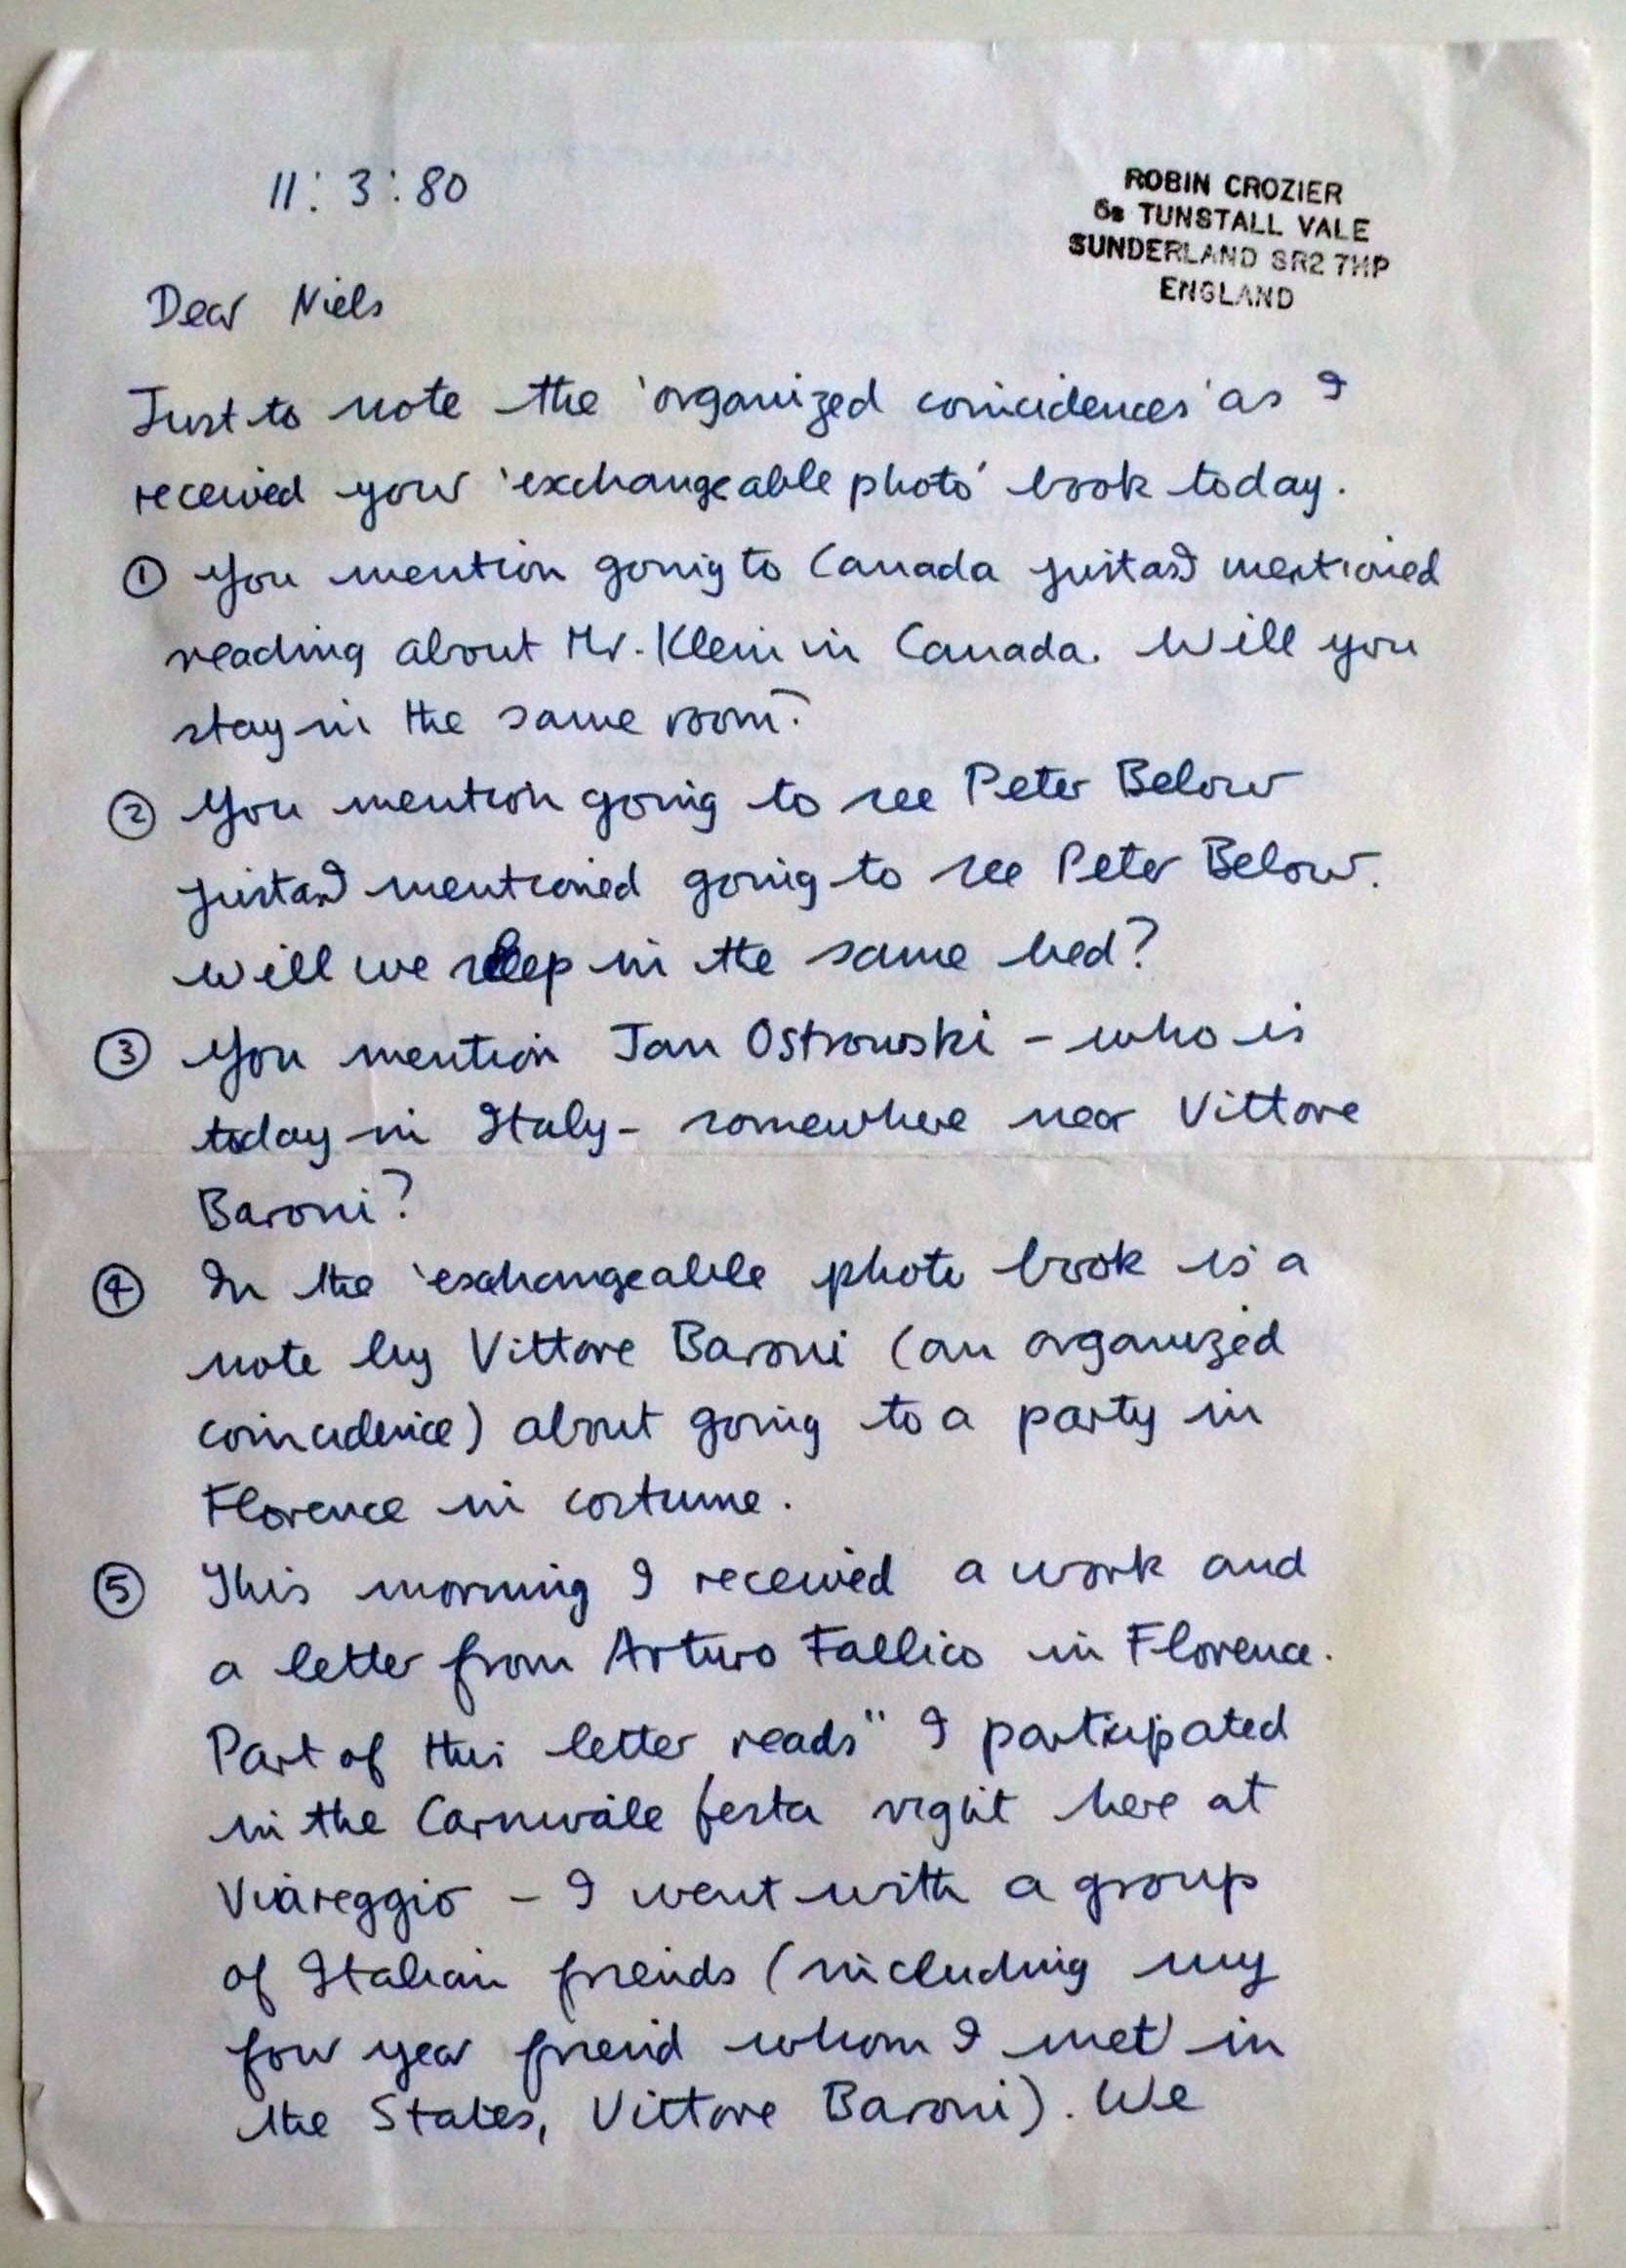 11:3:80
ROBIN CROZIER
5B TUNSTALL VALE
SUNDERLAND SR2 7HP
ENGLAND
Dear Niels
Just to note the 'organized coincidences' as I
received your 'exchangeable photo' book today.
① You mention going to Canada just as I mentioned
reading about Mr. Klein in Canada. Will you
stay in the same room?
② You mention going to see Peter Below
just as I mentioned going to see Peter Below.
Will we sleep in the same bed?
③ You mention Jan Ostrowski - who is
today in Italy - somewhere near Vittore
Baroni?
④ In the 'exchangeable photo book is a
note by Vittore Baroni (an organized
coincidence) about going to a party in
Florence in costume.
⑤ This morning I received a work and
a letter from Arturo Fallico in Florence.
Part of this letter reads " I participated
in the Carnivale festa right here at
Viareggio - I went with a group
of Italian friends (including my
four year friend whom I met in
the States, Vittore Baroni). We